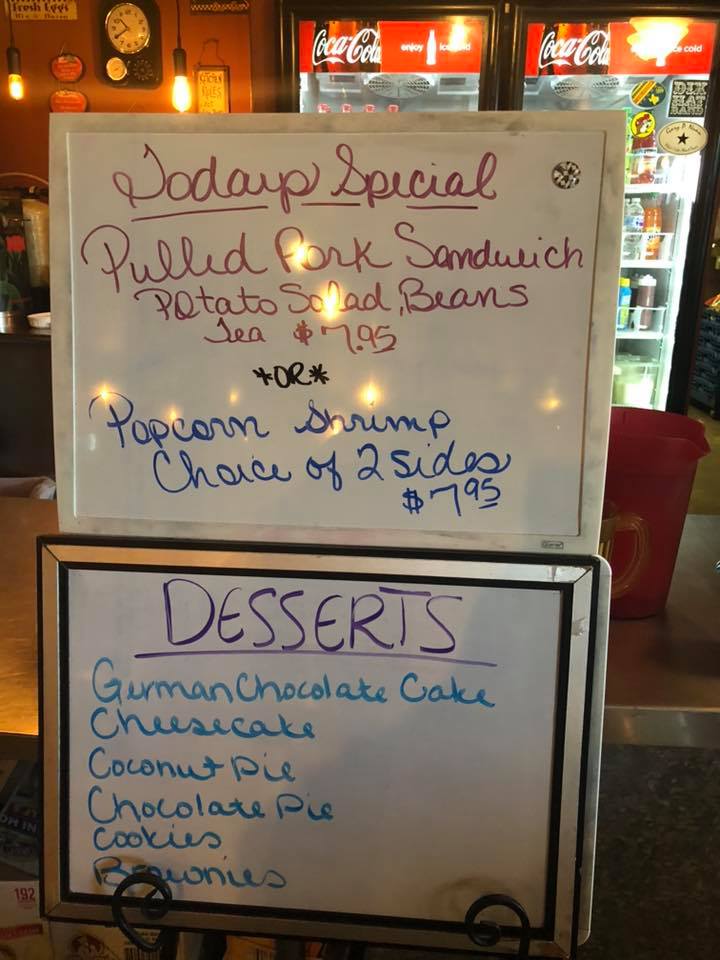 Fresh Eggs
Coca-Cola
enjoy
ice cold
Coca-Cola
ice cold
Today's Special
Pulled Pork Sandwich
Potato Salad, Beans
Tea $7.95
*OR*
Popcorn Shrimp
Choice of 2 sides
$7.95
DESSERTS
German Chocolate Cake
Cheesecake
Coconut Pie
Chocolate Pie
Cookies
Brownies
192